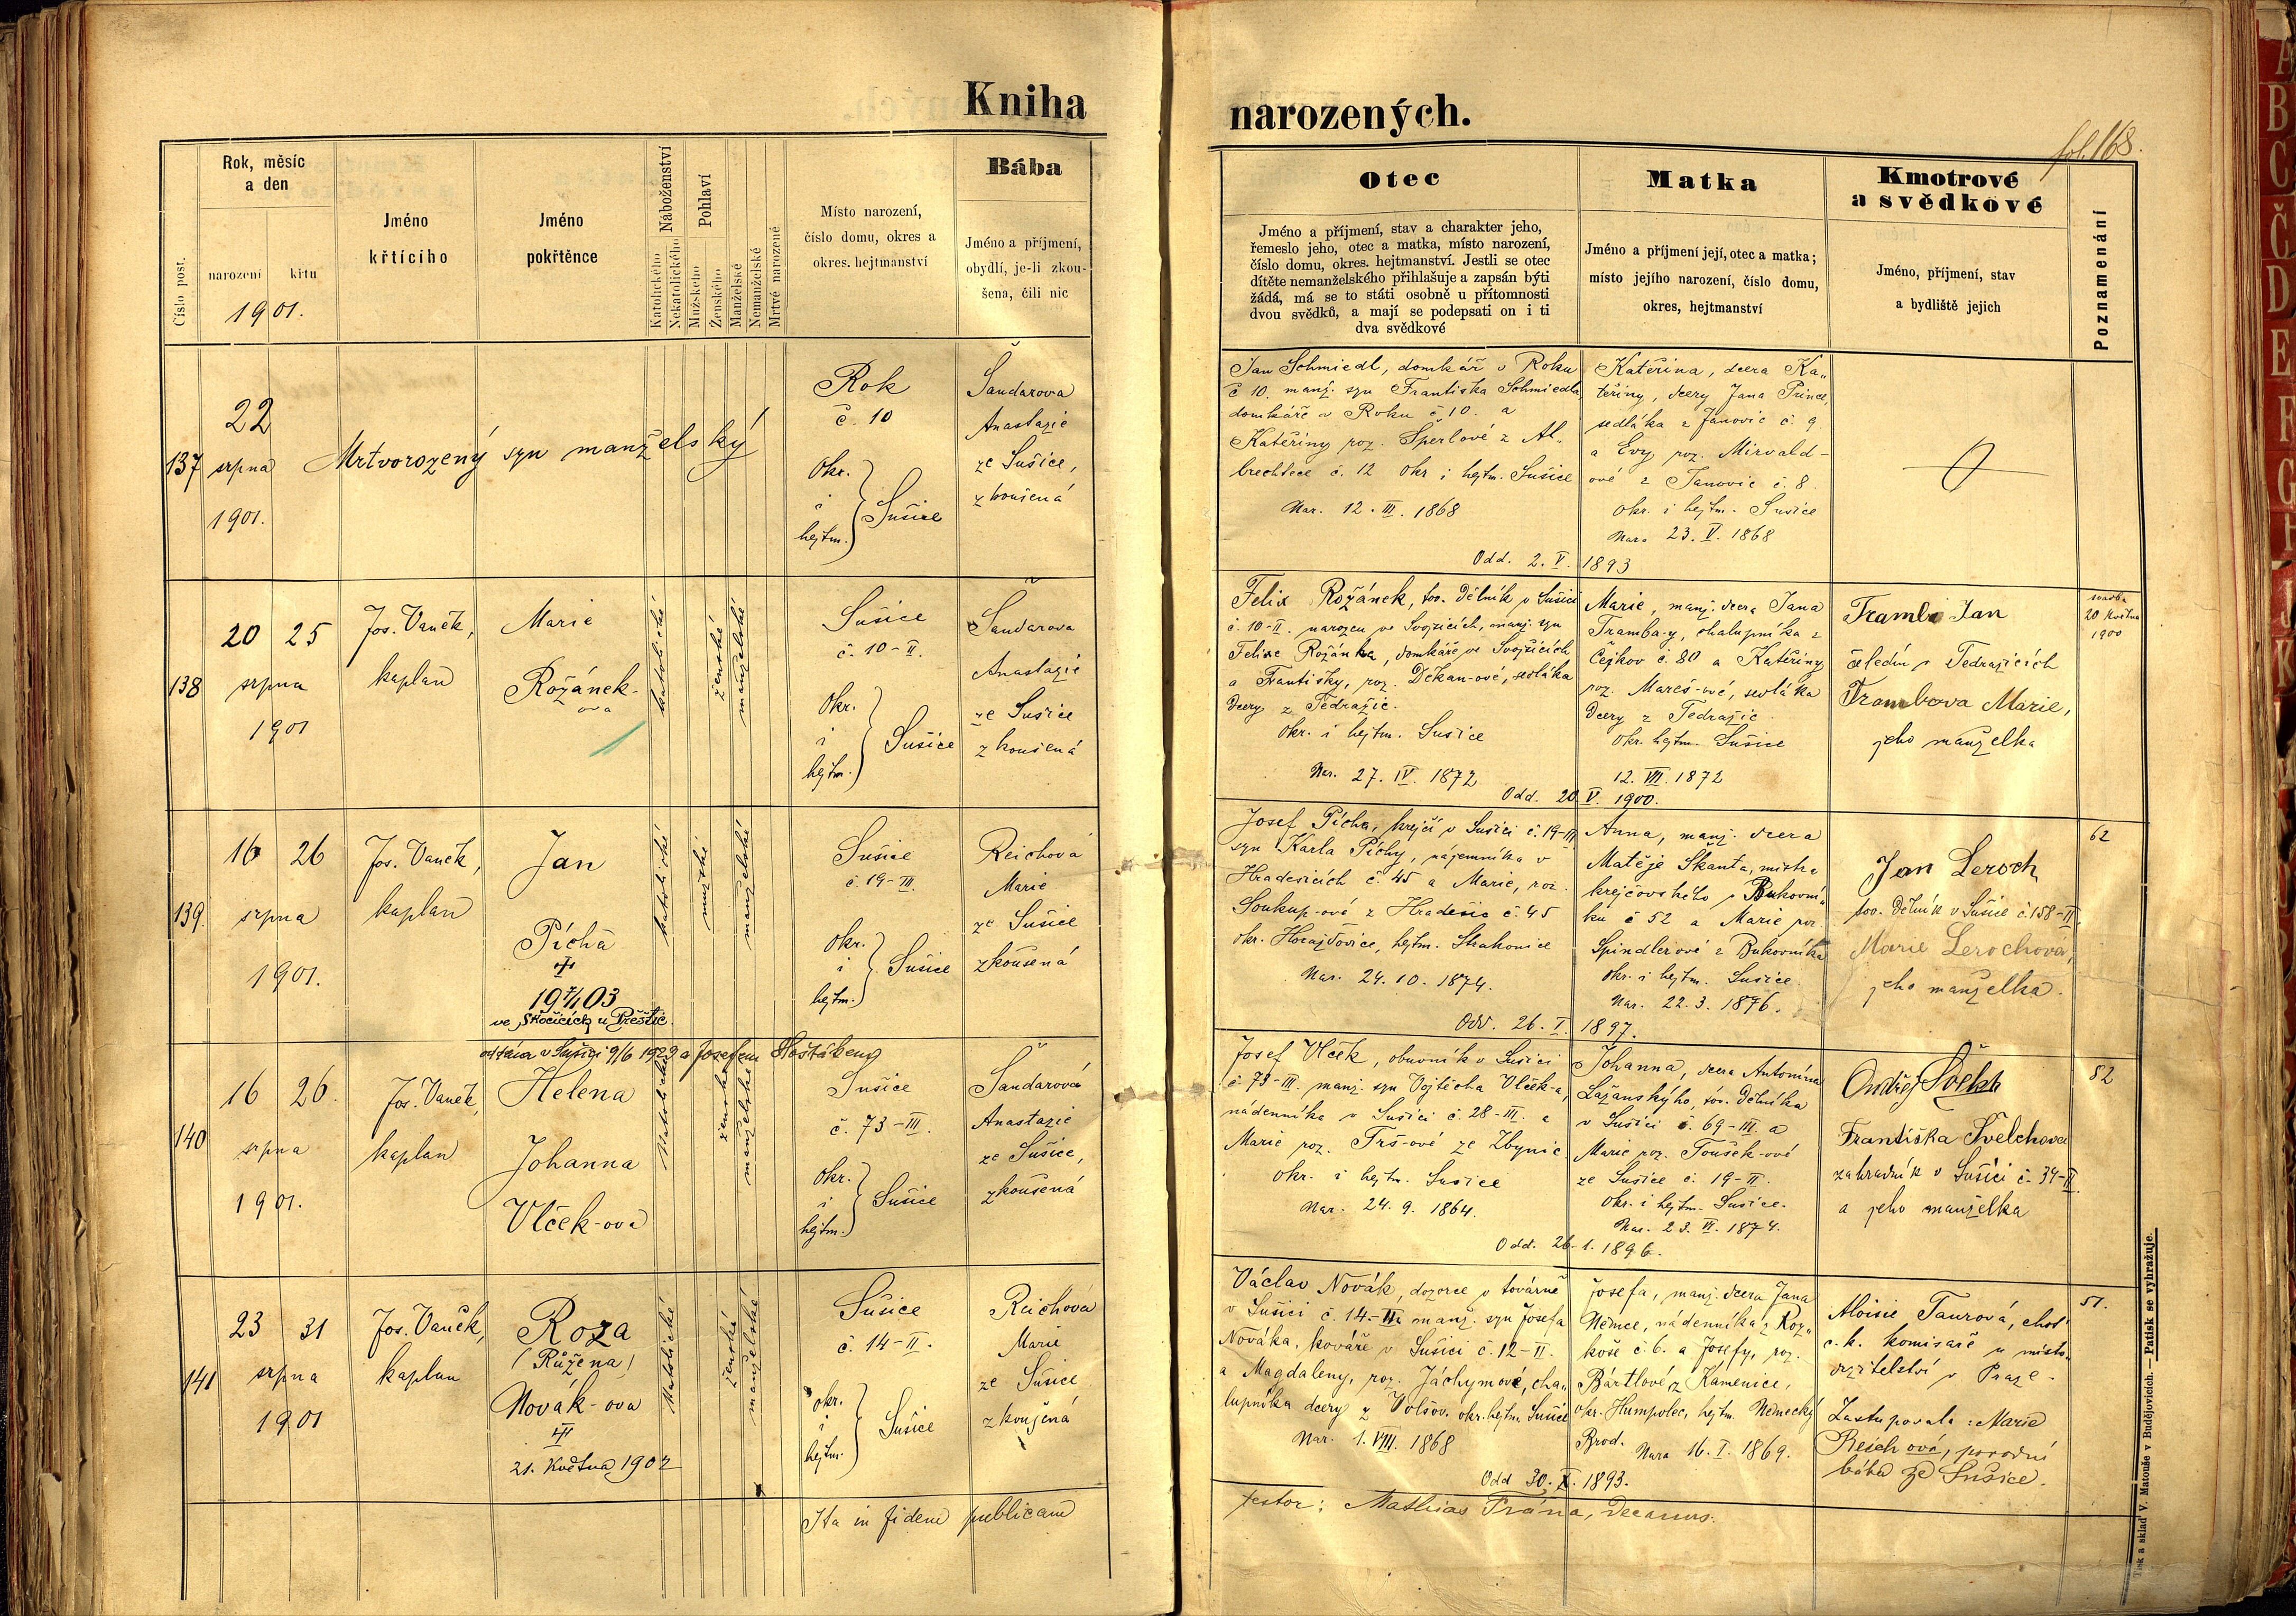 Kniha narozených.
fol. 168.
Číslo post.
Rok, měsíc
a den
narození
křtu
1901.
Jméno
křtícího
Jméno
pokřtěnce
Náboženství
Katolického
Nekatolického
Pohlaví
Mužského
Ženského
Manželské
Nemanželské
Mrtvě narozené
Místo narození,
číslo domu, okres a
okres. hejtmanství
Bába
Jméno a příjmení,
obydlí, je-li zkou-
šena, čili nic
Otec
Jméno a příjmení, stav a charakter jeho,
řemeslo jeho, otec a matka, místo narození,
číslo domu, okres. hejtmanství. Jestli se otec
dítěte nemanželského přihlašuje a zapsán býti
žádá, má se to státi osobně u přítomnosti
dvou svědků, a mají se podepsati on i ti
dva svědkové
Matka
Jméno a příjmení její, otec a matka;
místo jejího narození, číslo domu,
okres, hejtmanství
Kmotrové
a svědkové
Jméno, příjmení, stav
a bydliště jejich
Poznamenání
137
22
srpna
1901.
Mrtvorozený syn manželský
Rok
č. 10
Okr.
i
hejtm.
Sušice
Šandarova
Anastazie
ze Sušice,
zkoušená
Jan Schmiedl, domkář v Roku
č 10. manž. syn Františka Schmiedla
domkáře v Roku č 10. a
Kateřiny roz. Šperlové z Al-
brechtce č. 12 okr i hejtm. Sušice
Nar. 12. III. 1868
Kateřina, dcera Ka-
teřiny, dcery Jana Prince,
sedláka z Janovic č. 9
a Evy roz. Mirvald-
ové z Janovic č. 8.
okr. i hejtm. Sušice
Nar. 23. V. 1868
Odd. 2. V. 1893
138
20
25
srpna
1901
Jos. Vaněk,
kaplan
Marie
Rožánek-
ova
katolické
ženské
manželské
Sušice
č. 10-II.
Okr.
i
hejtm.
Sušice
Šandarova
Anastazie
ze Sušice
zkoušená
Felix Rožánek, tov. dělník v Sušici
č. 10-II. narozen ve Svojšicích, manž. syn
Felixe Rožánka, domkáře ve Svojšicích
a Františky, roz. Děkan-ové, sedláka
dcery z Tedražic.
Okr. i hejtm. Sušice
Nar. 27. IV. 1872
Marie, manž. dcera Jana
Tramba-y, chalupníka z
Čejkov č. 80 a Kateřiny
roz. Mareš-ové, sedláka
dcery z Tedražic.
Okr. hejtm. Sušice
12. VII. 1872
Odd. 20 V. 1900.
Tramba Jan
čeledín v Tedražicích
Trambova Marie,
jeho manželka
svatba
20 května
1900
139.
16
26
srpna
1901.
Jos. Vaněk,
kaplan
Jan
Pícha
19 7/1 03
ve Skočicích u Přeštic.
katolické
mužské
manželské
Sušice
č. 19-III.
Okr.
i
hejtm.
Sušice
Reichová
Marie
ze Sušice
zkoušená
Josef Pícha, krejčí v Sušici č. 19-III
syn Karla Píchy, nájemníka v
Hradešicích č. 45 a Marie, roz.
Soukup-ové z Hradešic č. 45
okr. Horažďovice, hejtm. Strakonice
Nar. 24. 10. 1874.
Anna, manž. dcera
Matěje Škanta, mistra
krejčovského v Bukovní-
ku č 52 a Marie roz.
Spindlerové z Bukovníka
okr. i hejtm. Sušice.
Nar. 22. 3. 1876.
Odd. 26. I. 1897.
Jan Leroch
tov. dělník v Sušice č. 158-II.
Marie Lerochová,
jeho manželka.
62
oddána v Sušici 9/6 1923 s Josefem Hoštákem
140
16
26.
srpna
1901.
Jos. Vaněk,
kaplan
Helena
Johanna
Vlček-ova
Katolické
ženské
manželské
Sušice
č. 73-III.
Okr.
i
hejtm.
Sušice
Šandarová
Anastazie
ze Sušice,
zkoušená
Josef Vlček, obuvník v Sušici
č. 73-III. manž. syn Vojtěcha Vlček-a,
nádenníka v Sušici č. 28-III. a
Marie roz. Trš-ové ze Zbynic
okr. i hejtm. Sušice
Nar. 24. 9. 1864.
Johanna, dcera Antonína
Lažanského, tov. dělníka
v Sušici č. 69-III. a
Marie roz. Toušek-ové
ze Sušice č. 19-II.
Okr. i hejtm. Sušice.
Nar. 23. VI. 1874.
Odd. 26. 1. 1896.
Ondřej Švelch
Františka Švelchova
zahradník v Sušici č. 34-II.
a jeho manželka
52
141
23
31
srpna
1901
Jos. Vaněk,
kaplan
Roza
(Růžena)
Novák-ova
21. května 1902
Katolické
ženské
manželské
Sušice
č. 14-II.
okr.
i
hejtm.
Sušice
Reichova
Marie
ze Sušice
zkoušená
Václav Novák, dozorce v továrně
v Sušici č. 14-II. manž. syn Josefa
Nováka, kováře v Sušici č. 12-II.
a Magdaleny, roz. Jáchymové, cha-
lupníka dcery z Volšov. okr. hejtm. Sušice
Nar. 1. VIII. 1868
Josefa, manž. dcera Jana
Němce, nádenníka z Roz-
koše č. 6. a Josefy, roz.
Bártlové z Kamenice,
okr. Humpolec, hejtm. Německý
Brod. Nar. 16. I. 1869.
Odd 30. X. 1893.
Aloisie Taurová, choť
c. k. komisaře u místo-
držitelství v Praze.
Zastupovala: Marie
Reichová, porodní
bába ze Sušice.
51.
Ita in fidem publicam
testor: Mathias Frána, Decanus.
Tisk a sklad V. Matouše v Budějovicích. — Patisk se vyhražuje.
A
B
C
Č
D
E
F
G